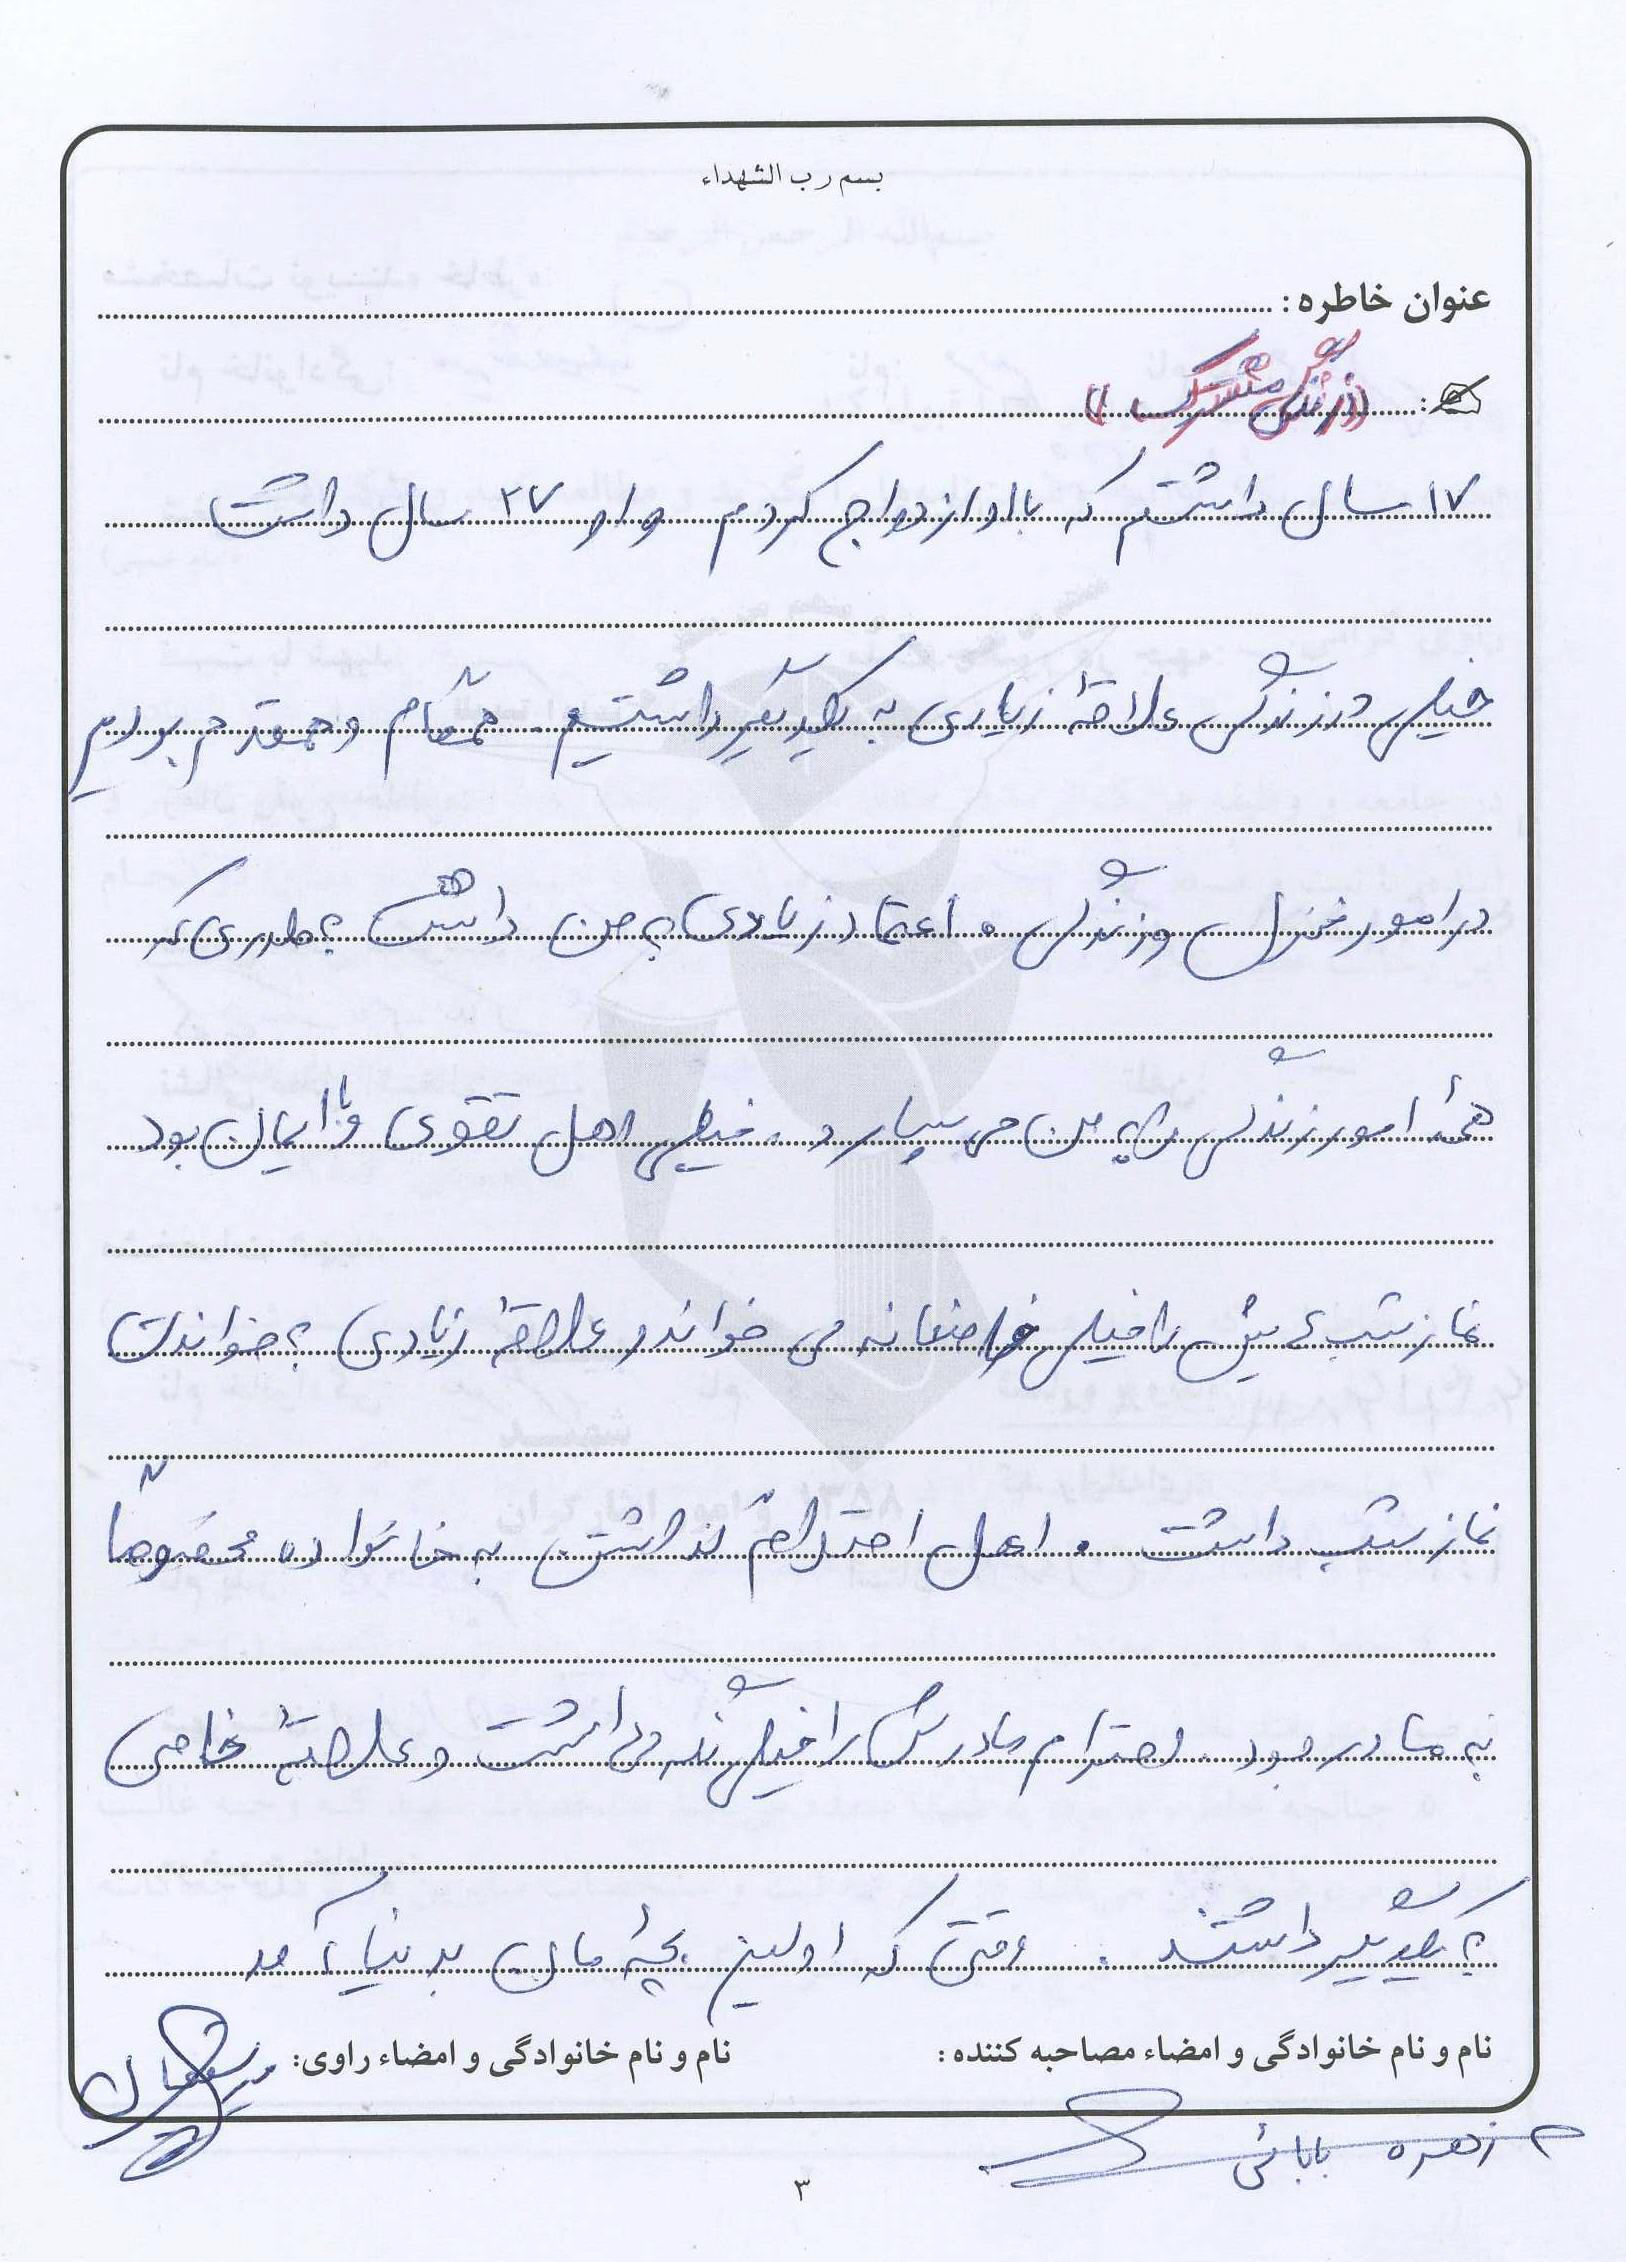 بسم رب الشهداء
عنوان خاطره :
((زندگی مشترک))
۱۷ سال داشتم که با او ازدواج کردم و او ۲۷ سال داشت
خیلی در زندگی علاقهٔ زیادی به یکدیگر داشتیم. همگام و همقدم بودیم
در امور منزل و زندگی. اعتماد زیادی به من داشت بطوری که
همهٔ امور زندگی را به من می سپارد. خیلی اهل تقوی و با ایمان بود
نماز شب را خیلی می خواند و علاقهٔ زیادی به خواندن
نماز شب داشت. اهل احترام گذاشتن به خانواده مخصوصاً
به مادر بود. احترام مادرش را خیلی نگه می داشت و علاقهٔ خاصی
به یکدیگر داشتند. وقتی که اولین بچهٔ مان بدنیا آمد
نام و نام خانوادگی و امضاء مصاحبه کننده :
نام و نام خانوادگی و امضاء راوی:
زهره بابائی
۳